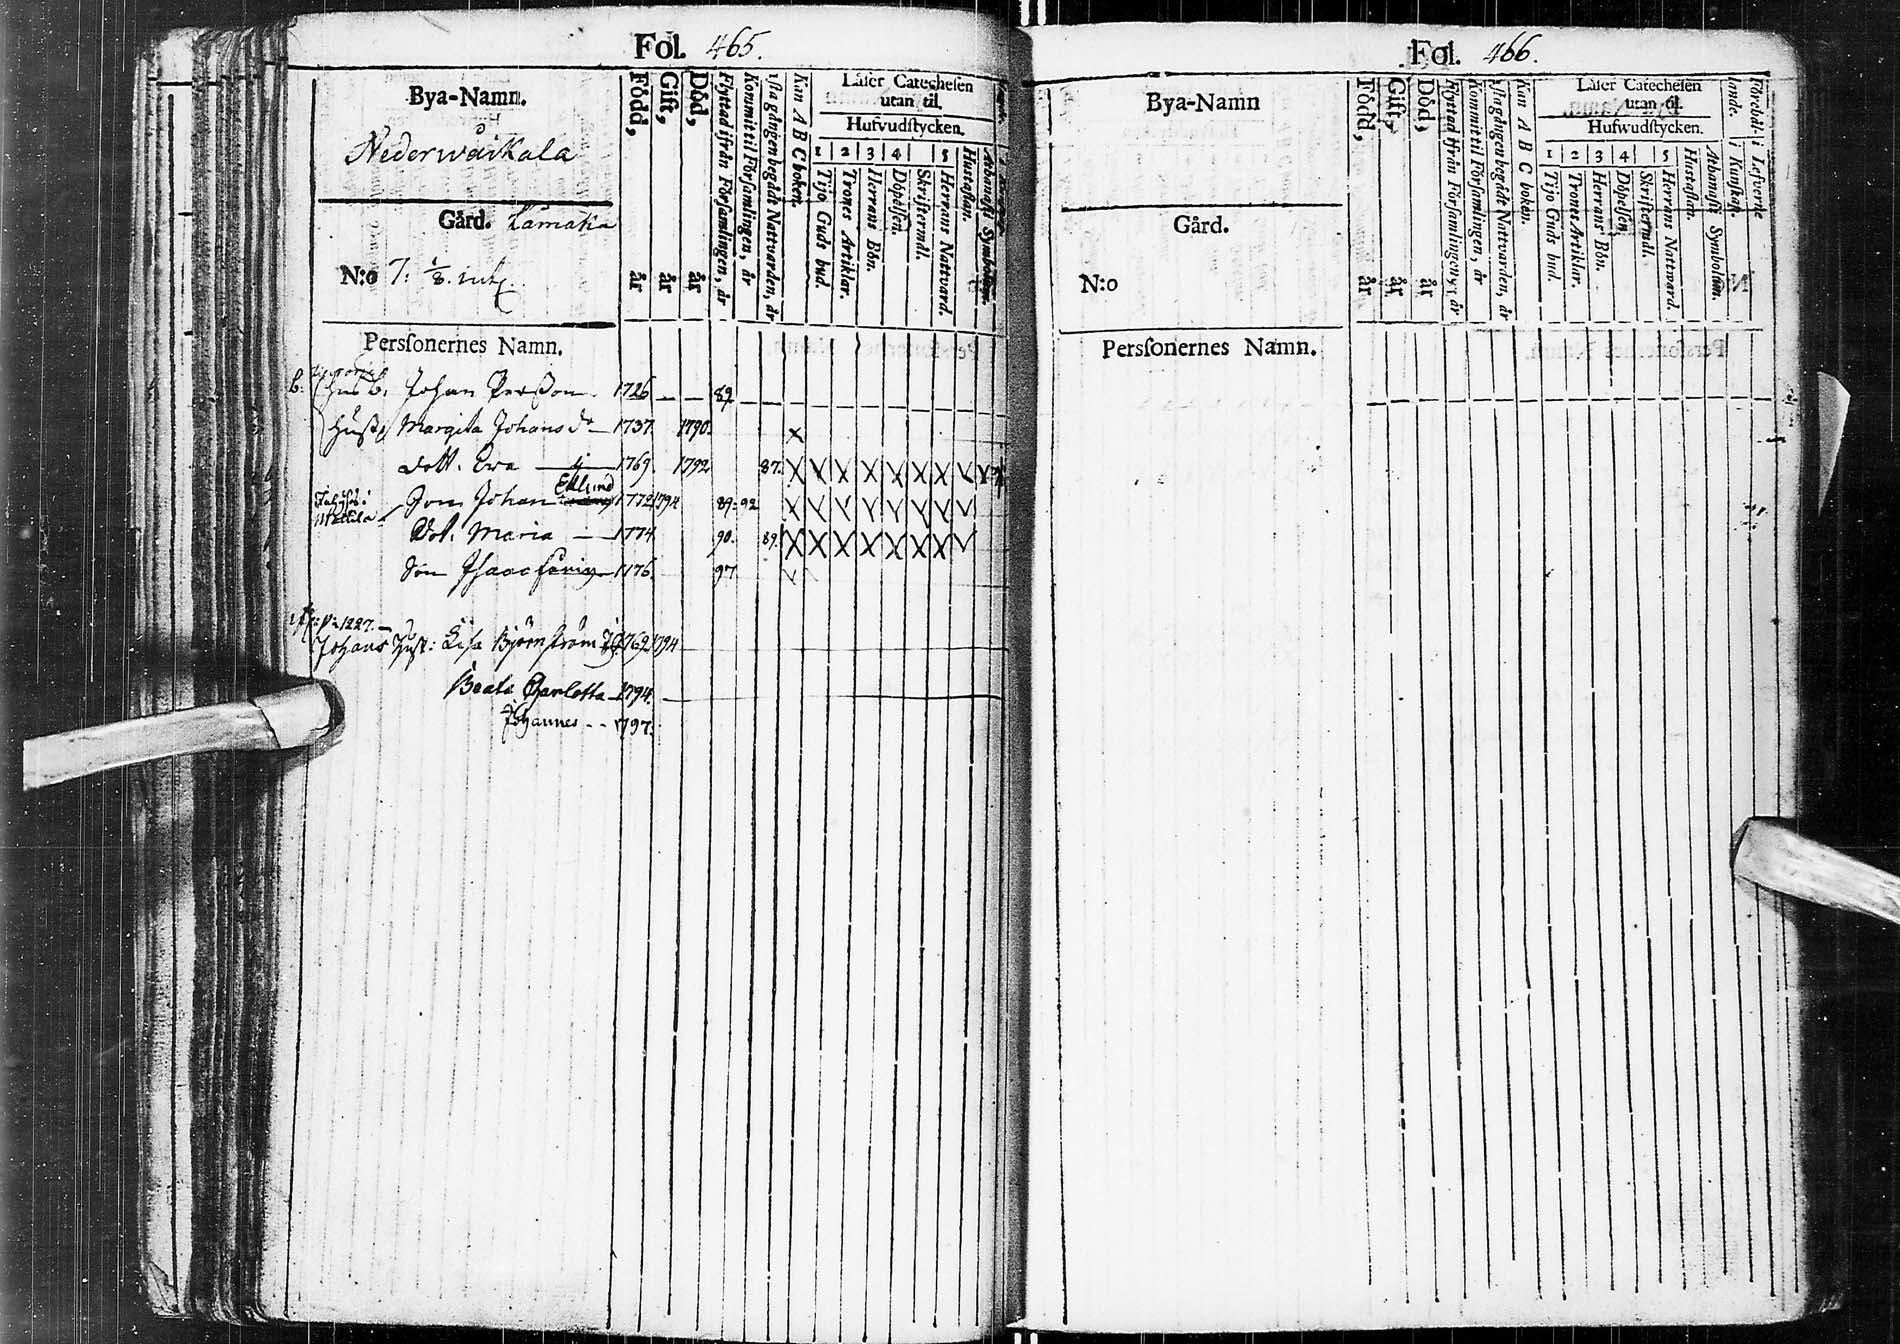 Fol. 465.
Bya-Namn.
Nederwåikala
Gård. Lamaka
N:o 7. 1/8.
Född, år
Gift, år
Död, år
Flyttad ifrån Församlingen, år
Kommit til Församlingen, år
1sta gången begådt Nattvarden, år
Kan A B C boken.
Läser Catechesen
utan til.
Hufvudstycken.
1 2 3 4 5
Tijo Guds bud.
Trones Artiklar.
Herrans Bön.
Döpelsen.
Skriftermål.
Herrans Nattvard.
Hustaflan.
Athanasii Symbolum.
Perssonernes Namn.
b. Husb. Johan Persson 1726 89
Hust. Margita Johans dr 1737 1790 x
dott. Eva 1769 1792 87. X X X X X X X
Son Johan Edlund 1772 1794 89-92
Dot. Maria 1774 90. 89. X X X X X X X
Son Isaac 1776. 97
p: 1227.
Johans Hust: Lisa Björnström 1769 1794
Beata Charlotta 1794.
Johannes - - 1797.
Fol. 466.
Bya-Namn
Gård.
N:o
Född, år
Gift, år
Död, år
Flyttad ifrån Församlingen, år
Kommit til Församlingen, år
1sta gången begådt Nattvarden, år
Kan A B C boken.
Läser Catechesen
utan til.
Hufwudstycken.
1 2 3 4 5
Tijo Guds bud.
Trones Artiklar.
Herrans Bön.
Döpelsen.
Skriftermål.
Herrans Nattward.
Hustaflan.
Athanasii Symbolum.
i Kunskap.
i Lefverne
Perssonernes Namn.